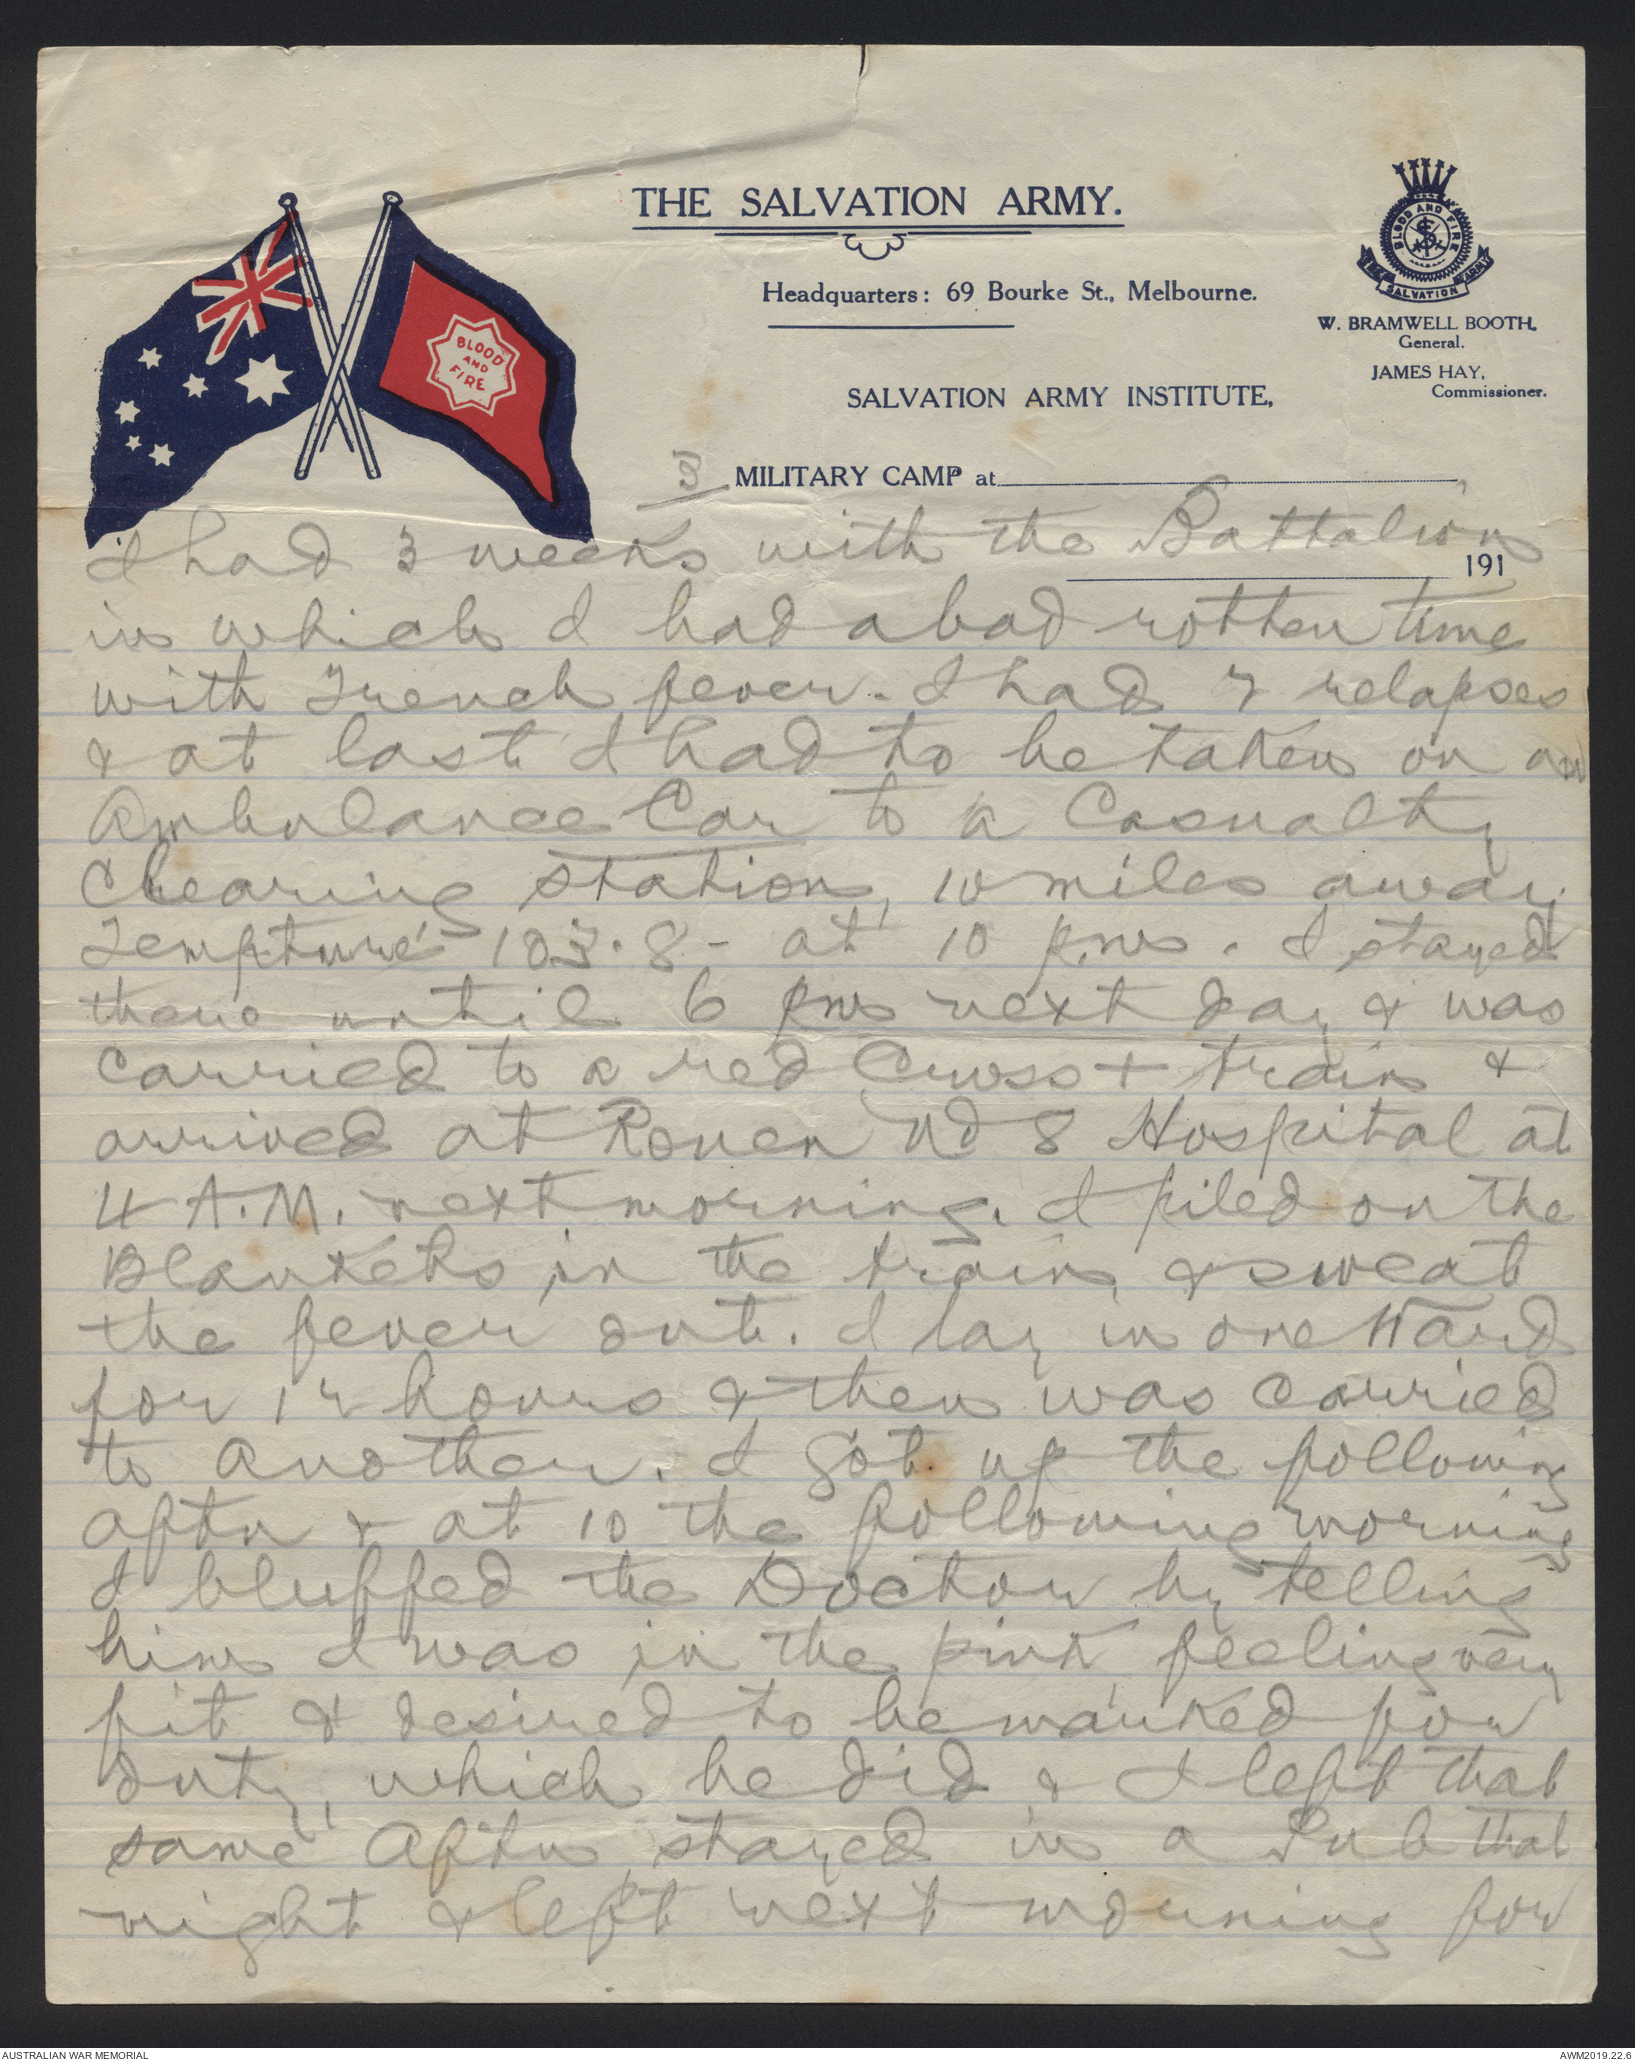 THE SALVATION ARMY.
Headquarters: 69 Bourke St., Melbourne.
BLOOD AND FIRE
THE SALVATION ARMY
W. BRAMWELL BOOTH,
General.
JAMES HAY,
Commissioner.
BLOOD
AND
FIRE
SALVATION ARMY INSTITUTE,
3 MILITARY CAMP at
191
I had 3 weeks with the Battalion
in which I had a bad rotten time
with Trench fever. I had 7 relapses
& at last I had to be taken on an
Ambulance Car to a Casualty
Clearing station, 10 miles away,
Tempture 103.8 - at 10 pm. I stayed
there until 6 pm next day & was
carried to a red Cross + train &
arrived at Rouen No 8 Hospital at
4 A.M. next morning. I piled on the
Blankets in the train & sweat
the fever out. I lay in one Ward
for 12 hours & then was carried
to another. I got up the following
aftn & at 10 the following morning
I bluffed the Doctor by telling
him I was in the pink, feeling very
fit & desired to be marked for
duty, which he did & I left that
same Aftn, stayed in a Pub that
night & left next morning for
AUSTRALIAN WAR MEMORIAL
AWM2019.22.6